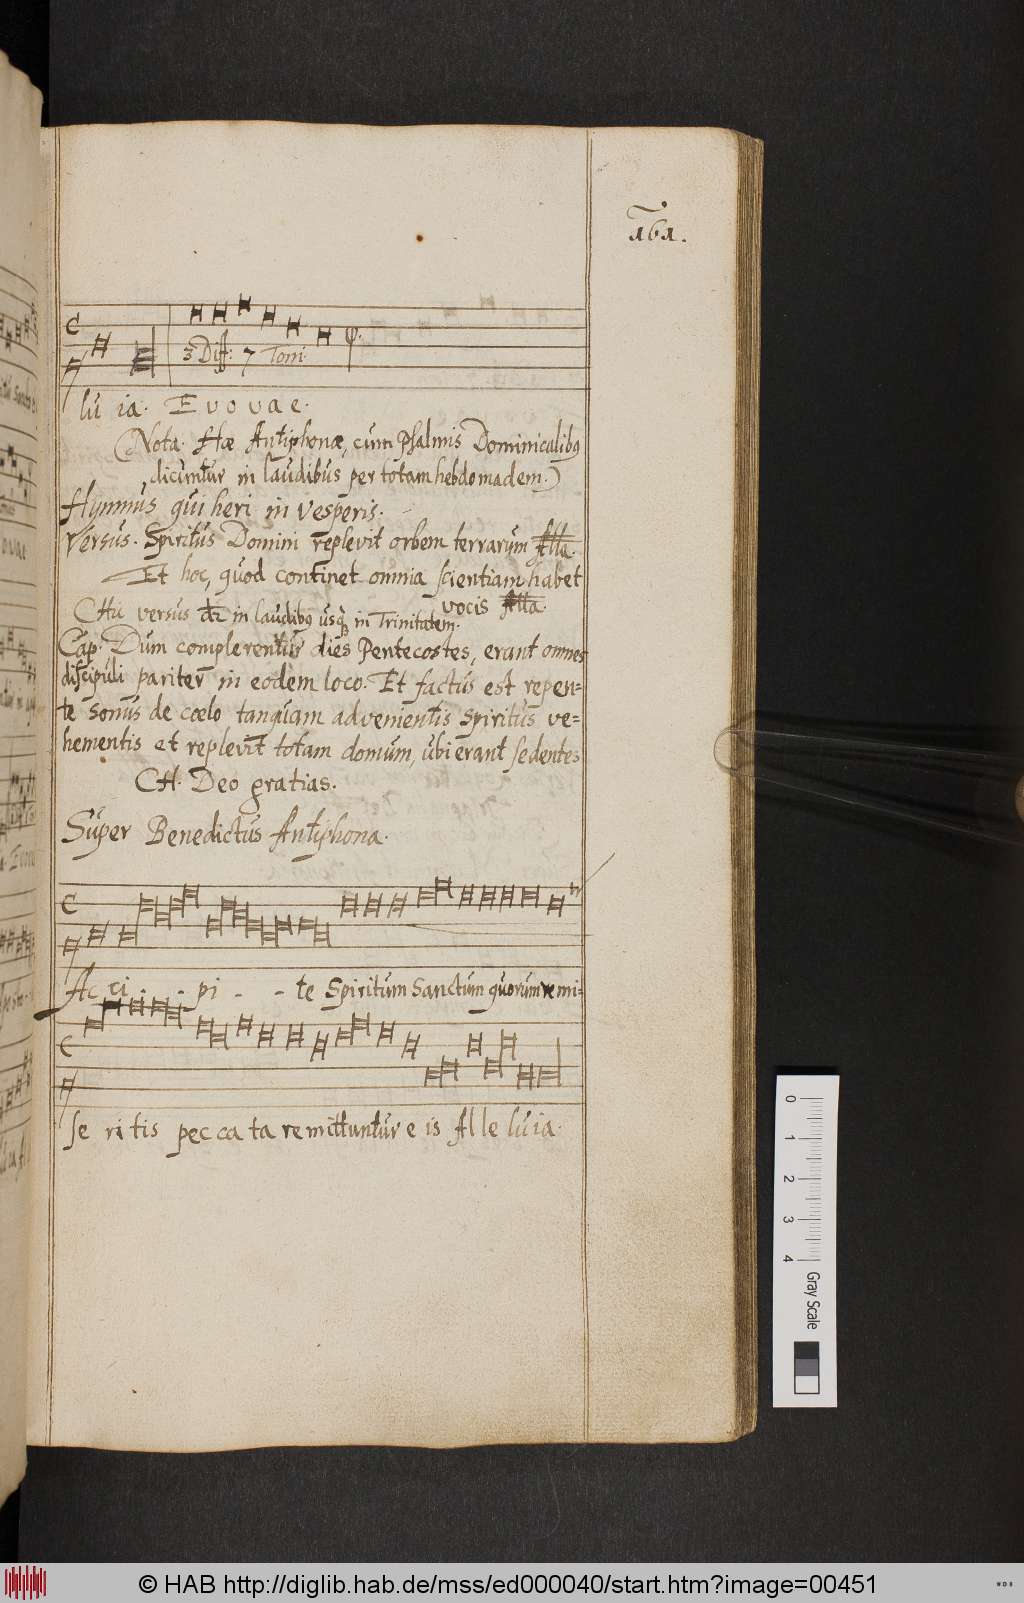 161.
3 Diff: 7 Toni.
lu ia. E v o v a e.
(Nota. Hæ Antiphonæ, cum Psalmis Dominicalibq
dicuntur in laudibus per totam hebdomadem.)
Hymnus qui heri in Vesperis.
Versus. Spiritus Domini replevit orbem terrarum Alla.
Et hoc, quod continet omnia scientiam habet
vocis Alla.
versus in laudibq usq in Trinitatem.
Cap. Dum complerentur dies Pentecostes, erant omnes
discipuli pariter in eodem loco. Et factus est repen=
te sonus de cœlo tanquam advenientis Spiritus ve=
hementis et replevit totam domum, ubi erant sedentes
CH. Deo gratias.
Super Benedictus Antiphona.
Ac ci - - pi - - te Spiritum Sanctum quorum re mi=
se ri tis pec ca ta remittuntur e is Al le lu ia.
0 1 2 3 4 Gray Scale
© HAB http://diglib.hab.de/mss/ed000040/start.htm?image=00451